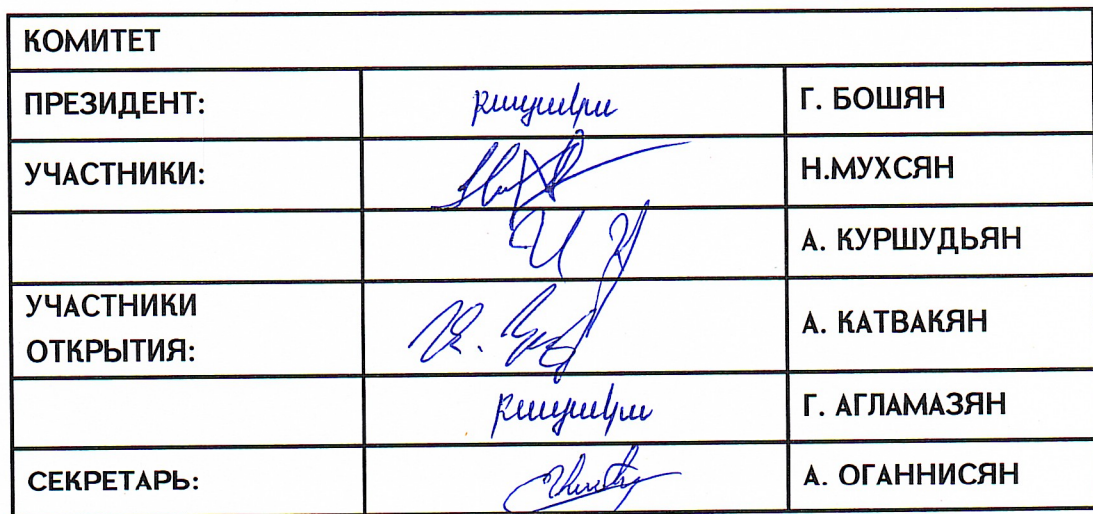 КОМИТЕТ
ПРЕЗИДЕНТ: բացակա Г. БОШЯН
УЧАСТНИКИ: Н.МУХСЯН
А. КУРШУДЬЯН
УЧАСТНИКИ
ОТКРЫТИЯ: А. КАТВАКЯН
բացակա Г. АГЛАМАЗЯН
СЕКРЕТАРЬ: А. ОГАННИСЯН